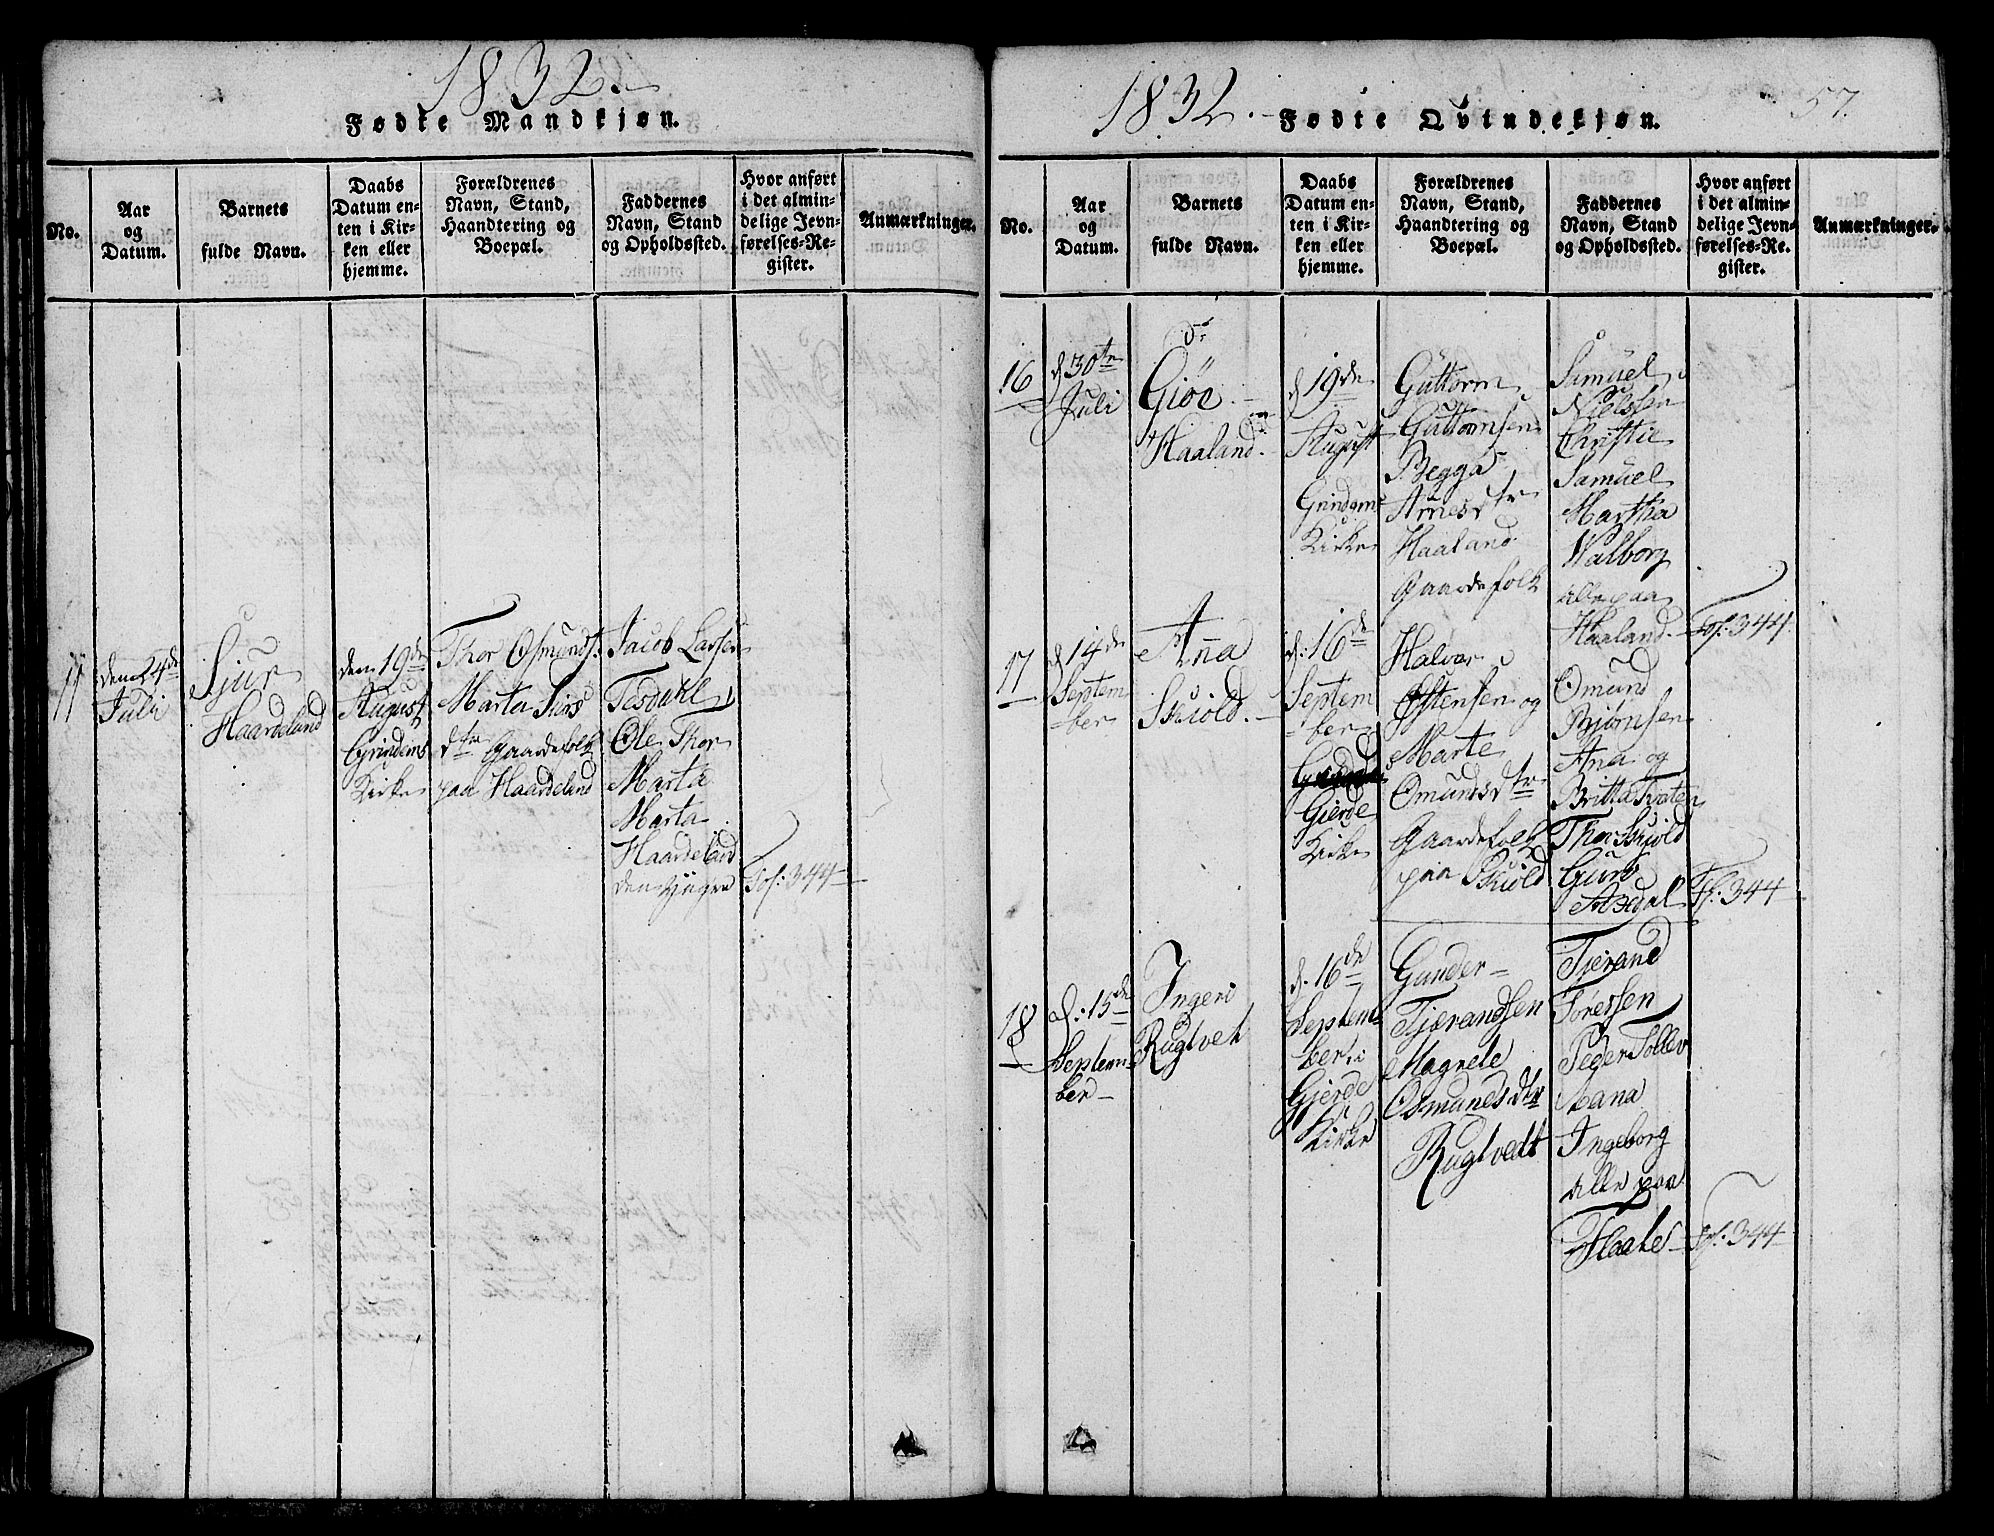 1832.
Fødte Mandkjøn.
No.
Aar
og
Datum.
Barnets
fulde Navn.
Daabs
Datum en-
ten i Kir-
ken eller
hjemme.
Forældrenes
Navn, Stand,
Haandtering og
Boepæl.
Faddernes
Navn, Stand
og Opholdssted.
Hvor anført
i det almin-
delige Jevn-
førelses-Re-
gister.
Anmærkninger.
11
den 24de
Juli
Sjur
Haardeland
den 19de
August
Grindems
Kirke
Thor Osmunds.
Marta Siurs
dtr Gaardefolk
paa Haardeland
Jacob Larsen
Tesdahl
Ole Thor
Marta
Marta
Haardeland
den yngre
Fol: 344
1832.
Fødte Qvindekjøn.
57.
No.
Aar
og
Datum.
Barnets
fulde Navn.
Daabs
Datum en-
ten i Kir-
ken eller
hjemme.
Forældrenes
Navn, Stand,
Haandtering og
Boepæl.
Faddernes
Navn, Stand
og Opholdssted.
Hvor anført
i det almin-
delige Jevn-
førelses-Re-
gister.
Anmærkninger.
16
d 30te
Juli
Giøe
Haaland.
d 19de
August
Grindems
Kirke
Guttorm
Guttormsen
Begga
Arnesdtr
Haaland
Gaardefolk
Samuel
Nielssen
Christie
Samuel
Martha
Walborg
alle paa
Haaland.
Fol: 344
17
d 14de
Septem
ber
Anna
Skiold.
d: 16de
Septem
ber
Gierde
Kirke
Halvor
Østensen og
Marte
Omundsdtr
Gaardefolk
paa Skiold
Omund
Bjørnsen
Ana og
Britta Traten
Thor Skjold
Guro
Axdal
Fol: 344
18
d: 15de
Septem-
ber
Ingeri
Rugtvet
d. 16de
Septem-
ber i
Gjerde
Kirke
Gunder
Tjerandsen
Magnele
Osmundsdtr
Rugtvedt
Tjerand
Toressen
Peder Tollev
Aana
Ingeborg
alle paa
Flaate
Fol: 344